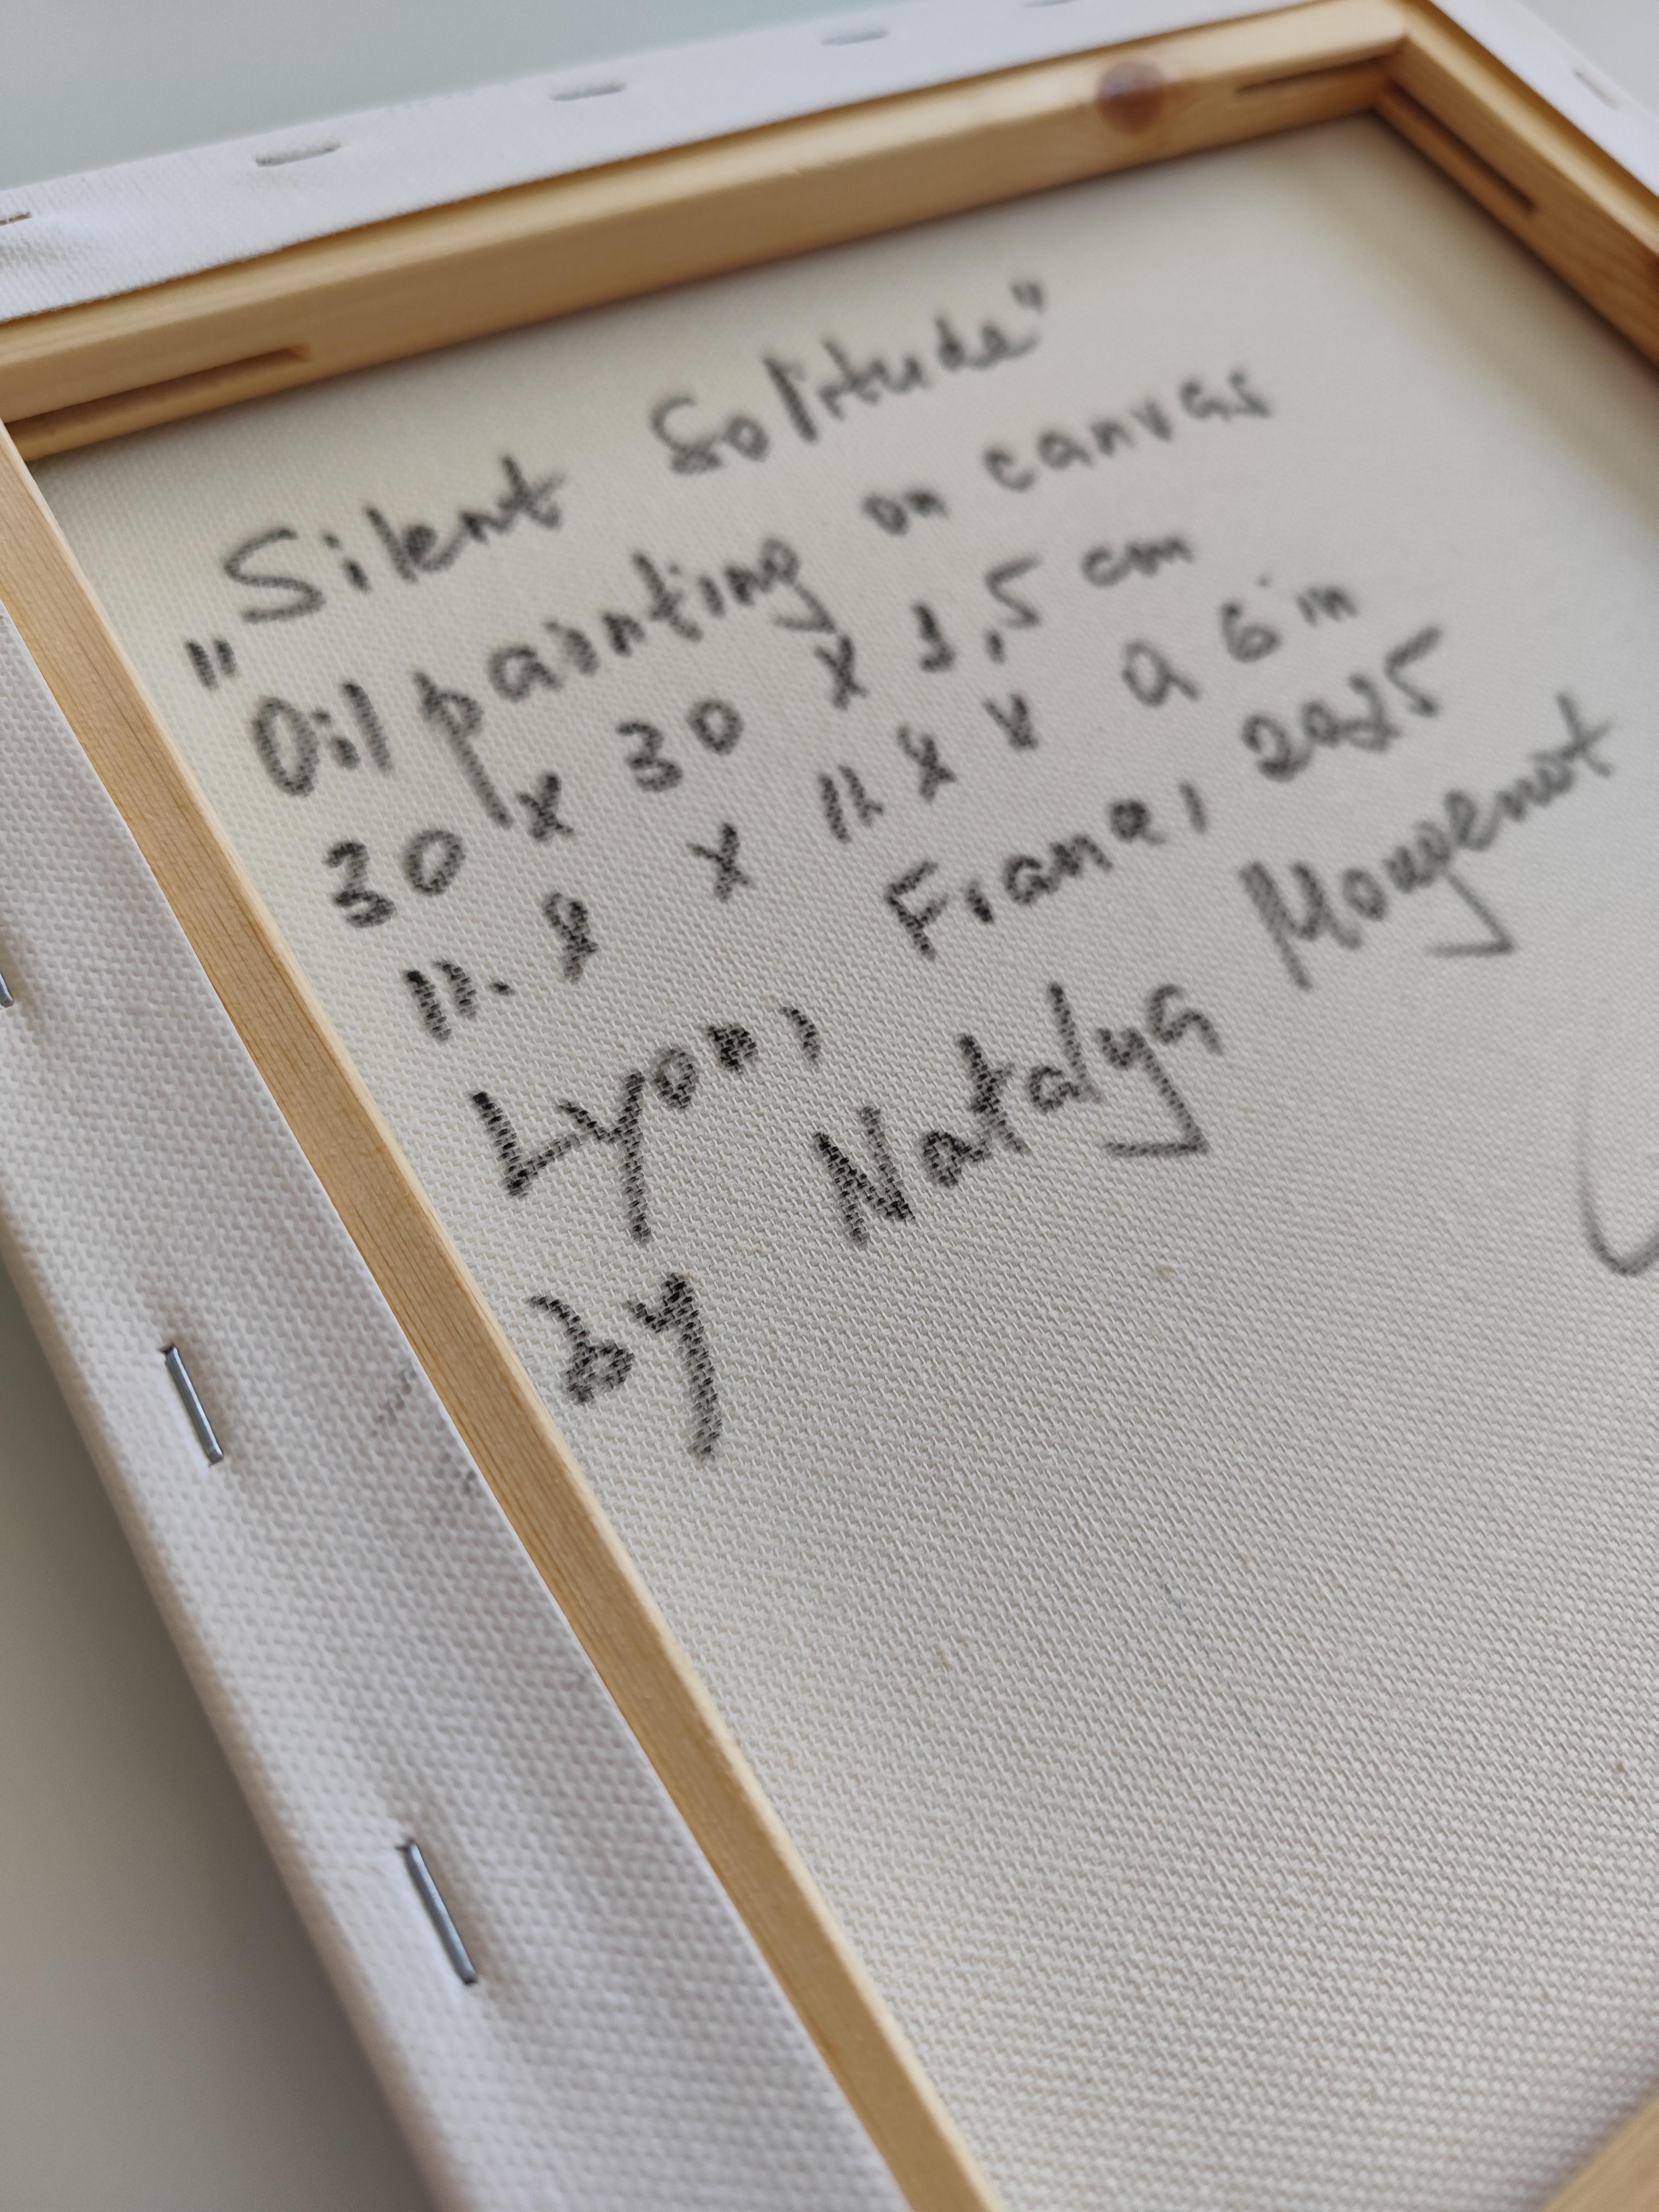 „Silent Solitude"
Oil painting on canvas
30 x 30 x 1,5 cm
11.8 x 11.8 x 0.6 in
Lyon, France, 2025
by Natalya Mougenot